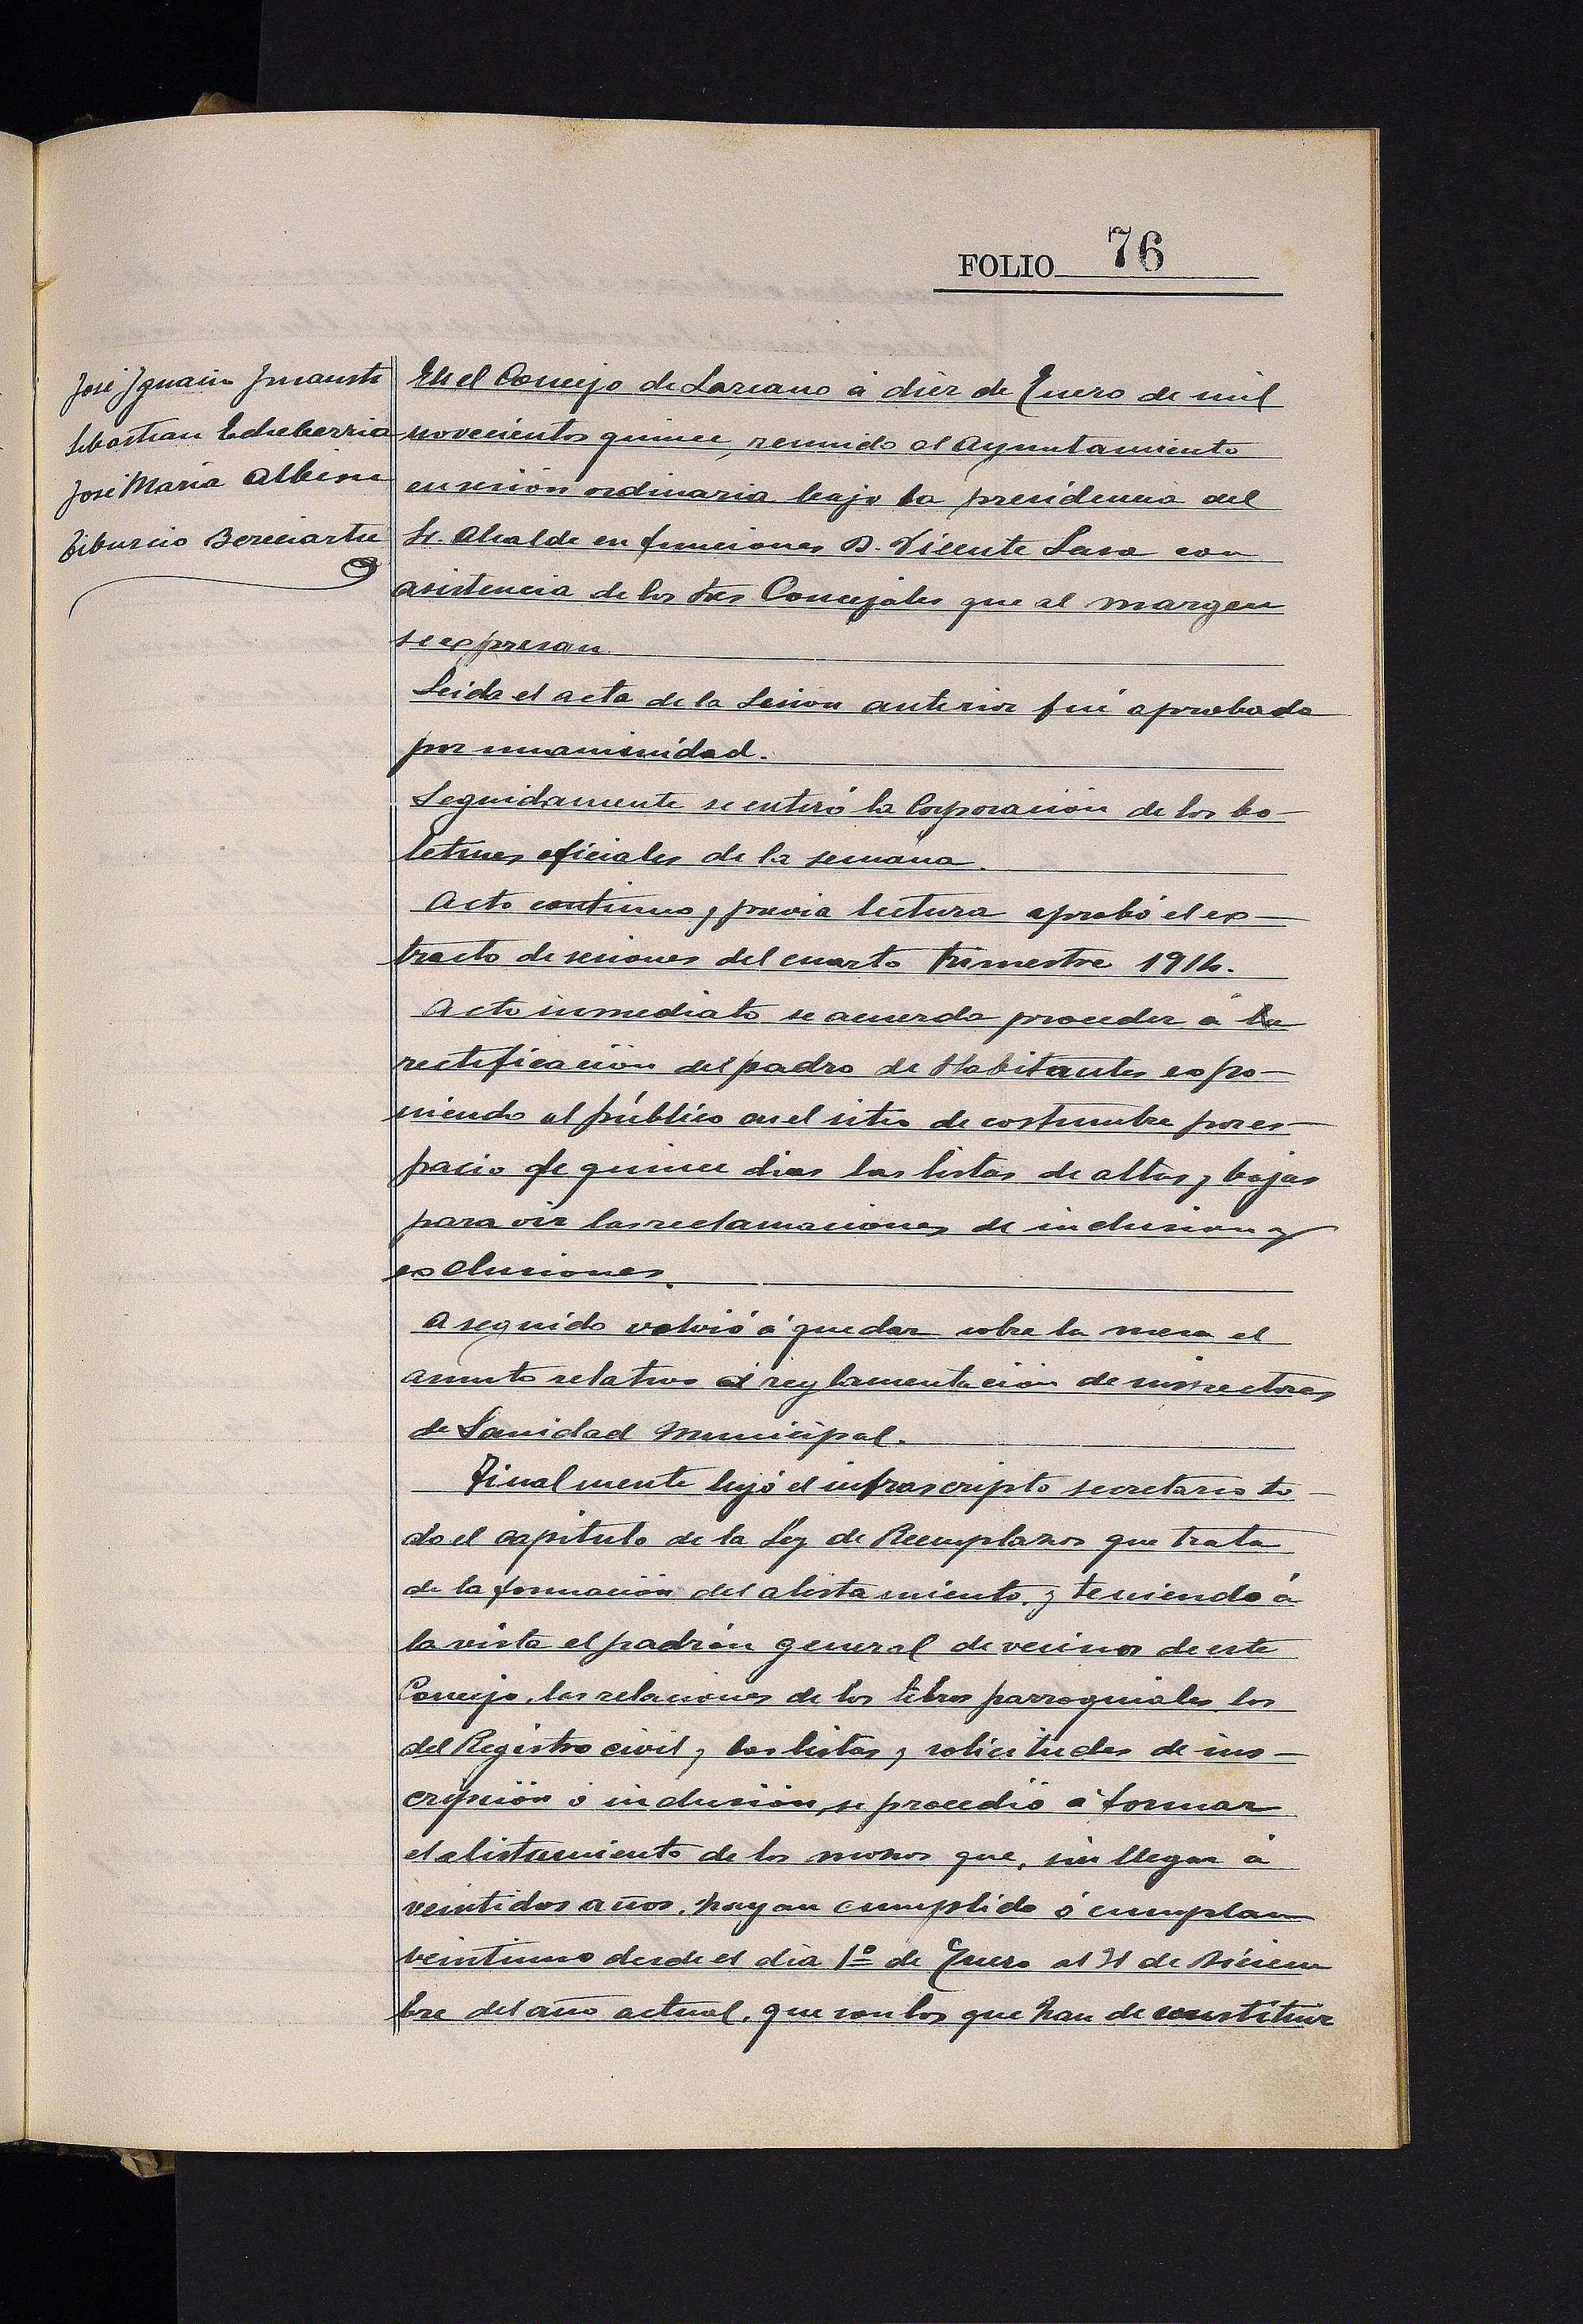 FOLIO 76
José Ignacio Imausti
Sebastian Echeberria
José Maria Albisu
Tiburcio Berciartu
En el Concejo de Lazcano á diez de Enero de mil
novecientos quince, reunido el Ayuntamiento
en sesión ordinaria bajo la presidencia del
Sr. Alcalde en funciones D. Vicente Lasa con
asistencia de los tres Concejales que al margen
se expresan.
Leida el acta de la Sesion anterior fué aprobada
por unanimidad.
Seguidamente se enteró la Corporación de los bo-
letines oficiales de la semana.
Acto continuo y previa lectura aprobó el ex-
tracto de sesiones del cuarto trimestre 1914.
Acto inmediato se acuerda proceder á la
rectificación del padro de Habitantes expo-
niendo al público en el sitio de costumbre por es-
pacio de quince dias las listas de altas y bajas
para oir las reclamaciones de inclusion y
exclusiones.
A seguido volvió á quedar sobre la mesa el
asunto relativo á reglamentación de inspectores
de Sanidad Municipal.
Finalmente leyó el infrascripto secretario to-
do el capitulo de la Ley de Reemplazos que trata
de la formación del alistamiento, y teniendo á
la vista el padrón general de vecinos de este
Concejo, las relaciones de los libros parroquiales, los
del Registro civil, y las listas y solicitudes de ins-
cripción ó inclusión, se procedió á formar
el alistamiento de los mozos que, sin llegar á
veintidos años, hayan cumplido ó cumplan
veintiuno desde el dia 1º de Enero al 31 de Diciem
bre del año actual, que son los que han de constituir